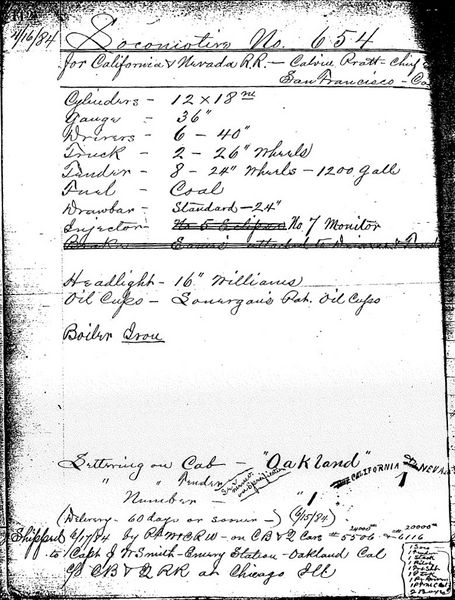 4/16/84 Locomotive No. 654
for California & Nevada R.R. — Calvin Pratt - Chief
San Francisco - Co
Cylinders - 12 x 18 in
Gauge - 36"
Drivers - 6 - 40"
Truck - 2 - 26" Wheels
Tender - 8 - 24" Wheels - 1200 Gall
Fuel - Coal
Drawbar - Standard - 24"
Injector - No 5 Eclipse No. 7 Monitor
Brake - Eames attached to Drivers &
Headlight - 16" Williams
Oil Cups - Lonergan's Pat. Oil Cups
Boiler Iron
Lettering on Cab - "Oakland"
" " Tender CALIFORNIA & NEVADA
Number - "1" 1
(Delivery - 60 days or sooner -) (6/15/84)
Shipped 6/7/84 by on C B & Q Cars # 5506 - # 6116
to Capt J W Smith - Emery Station - Oakland Cal
C/o C B & Q RR at Chicago Ill
24000 20000